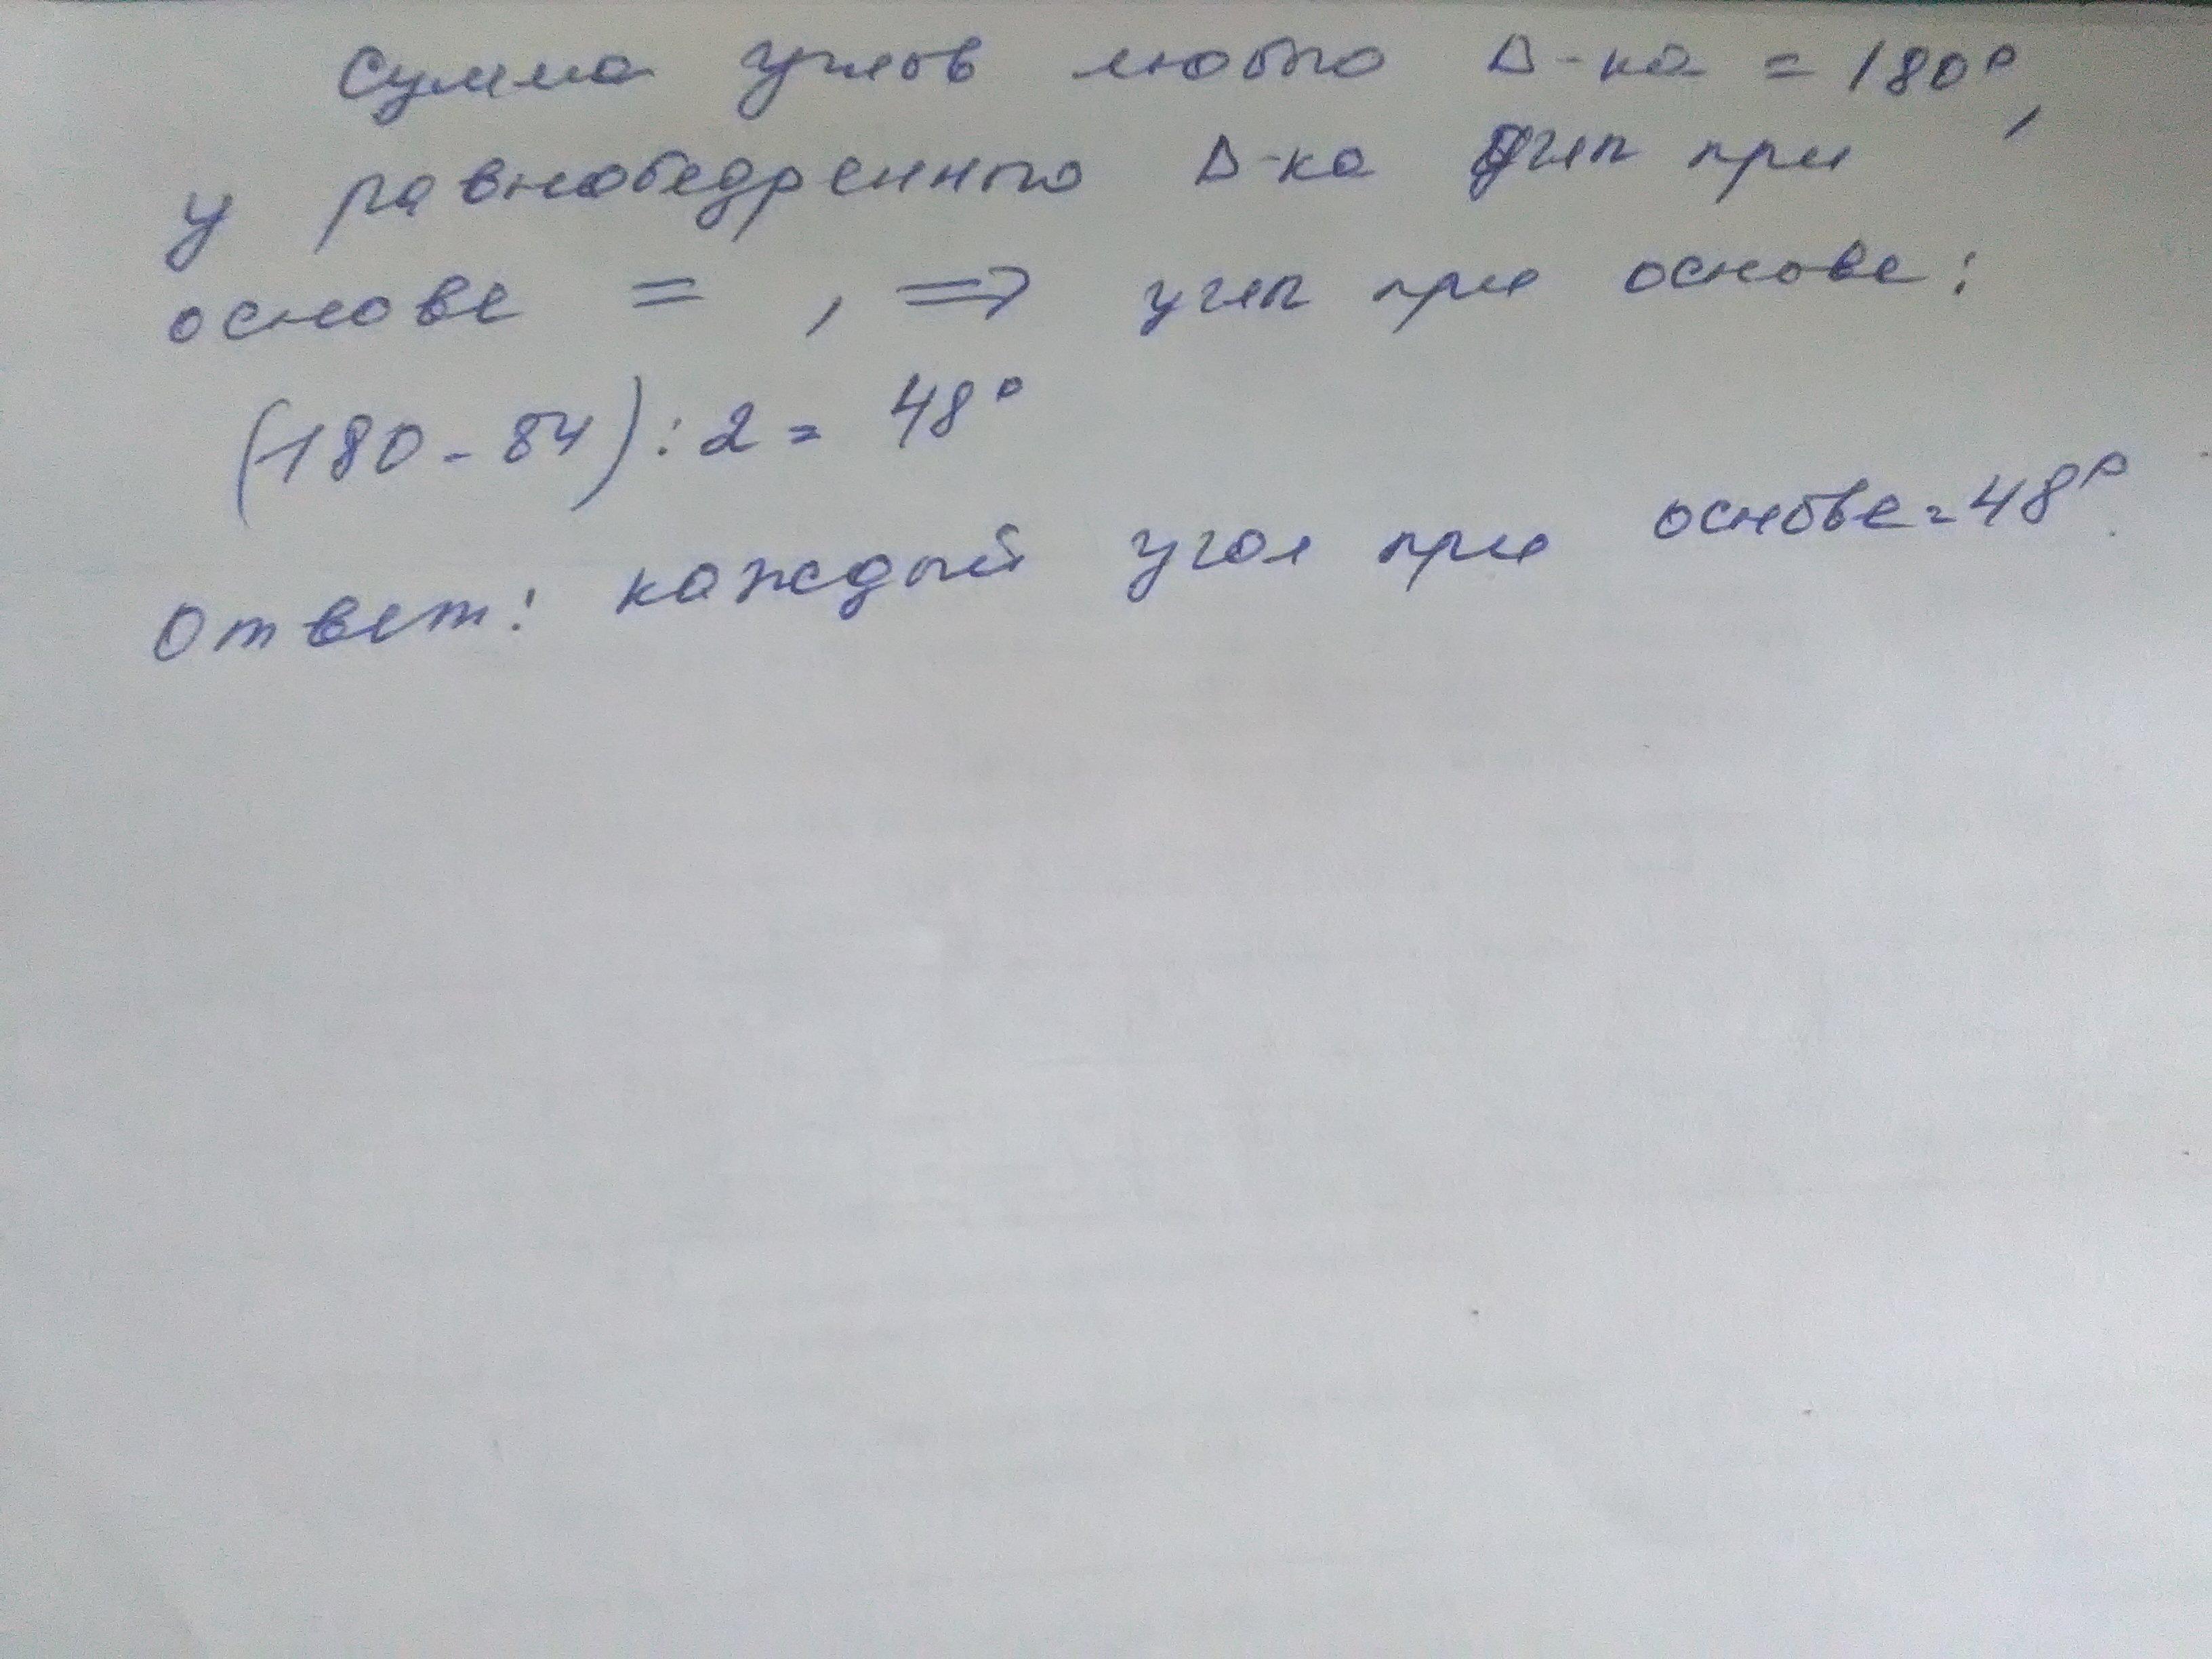 Сумма углов любого Δ-ка = 180°,
у равнобедренного Δ-ка углы при
основе = , => углы при основе:
(180-84):2= 48°
Ответ: каждый угол при основе=48°.